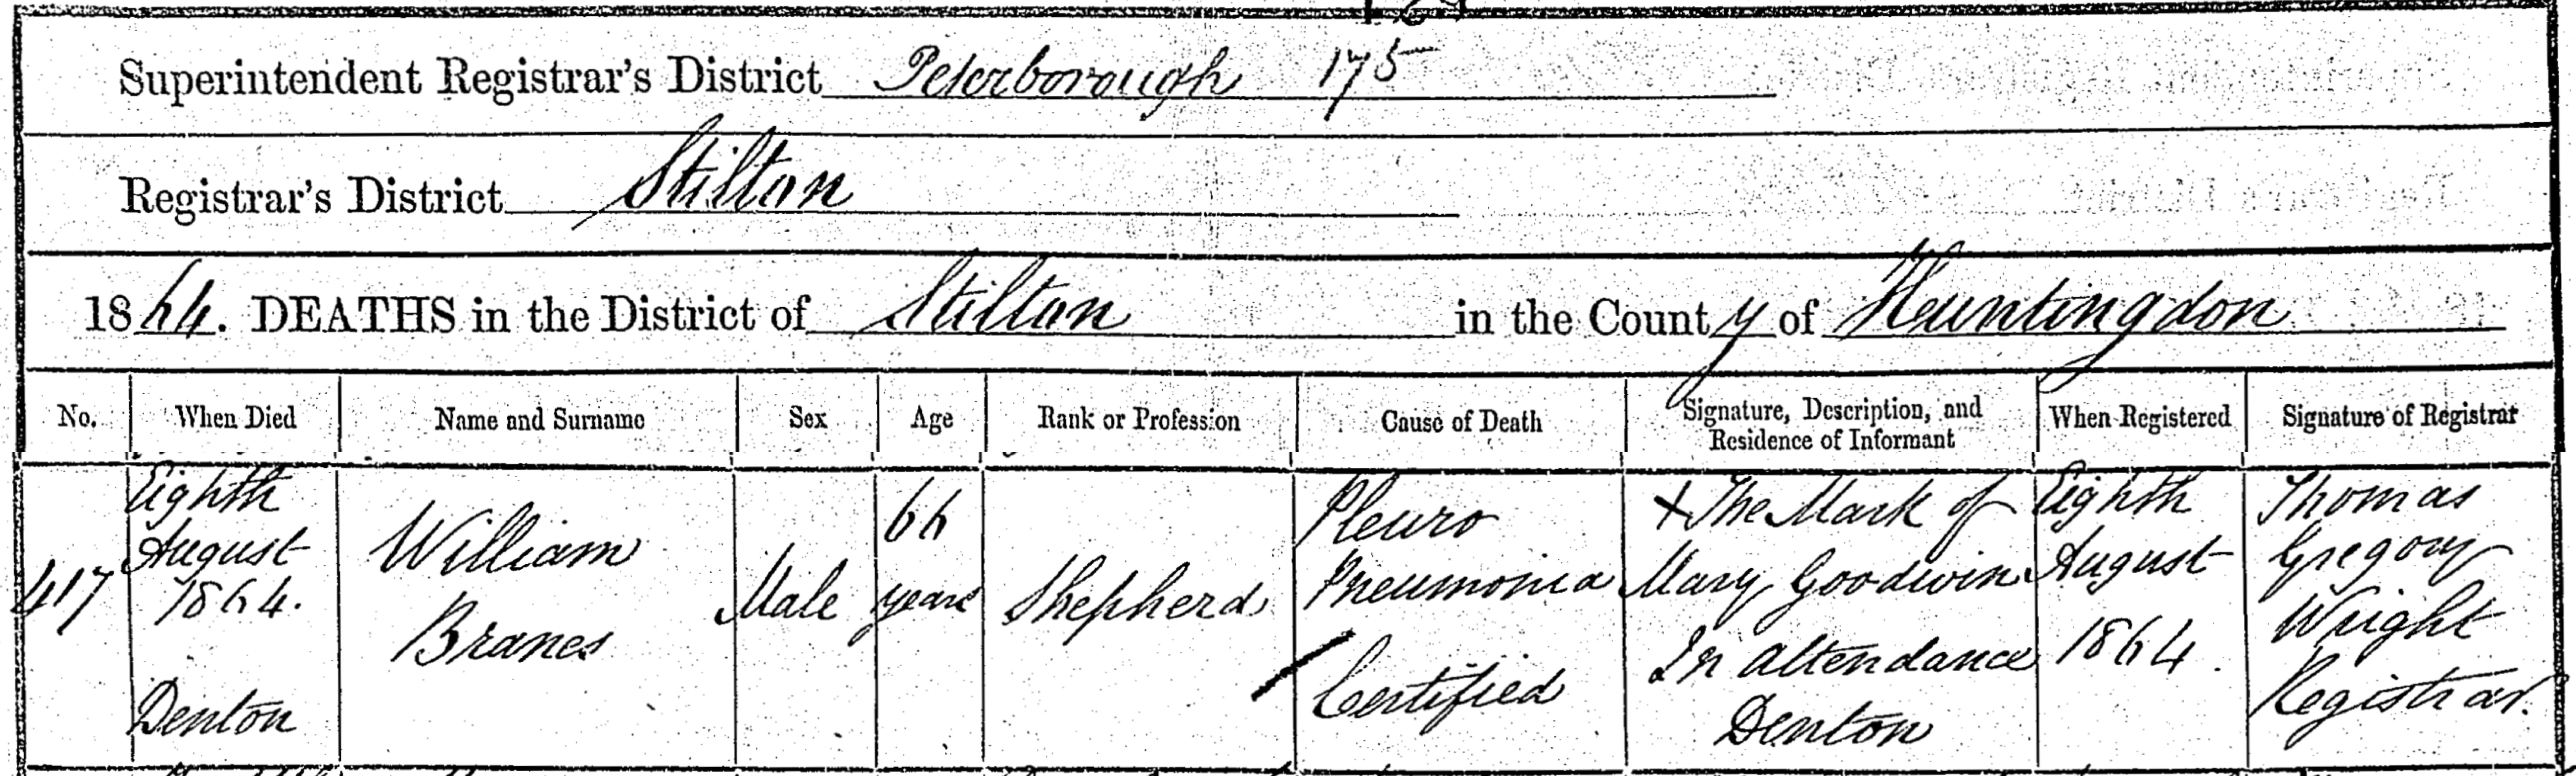 Superintendent Registrar's District Peterborough 175
Registrar's District Stilton
1864. DEATHS in the District of Stilton in the County of Huntingdon
No. When Died Name and Surname Sex Age Rank or Profession Cause of Death Signature, Description, and Residence of Informant When Registered Signature of Registrar
417
Eighth
August
1864.
Denton
William
Branes
Male
66
years
Shepherd
Pleuro
Pneumonia
Certified
X The Mark of
Mary Goodwin
In attendance
Denton
Eighth
August
1864.
Thomas
Gregory
Wright
Registrar.